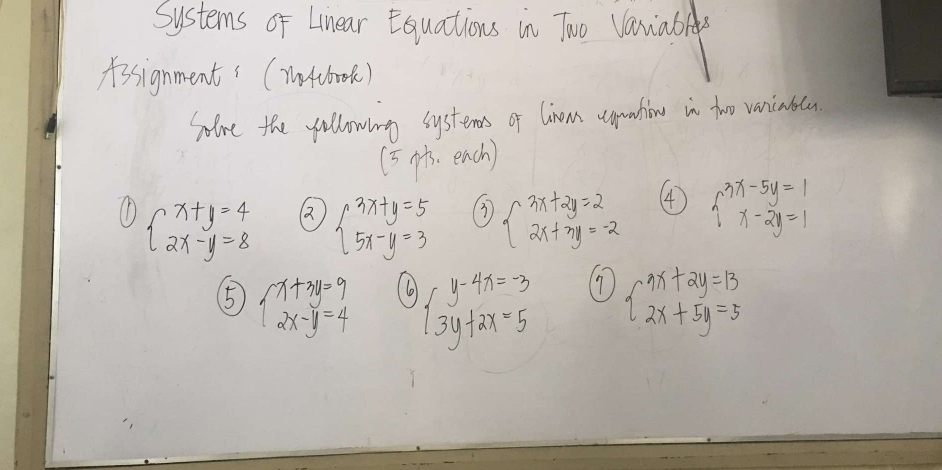 Systems of Linear Equations in Two Variables
Assignment : (notebook)
Solve the following systems of linear equations in two variables.
(5 pts. each)
① { x+y=4 ② { 3x+y=5 ③ { 3x+2y=2 ④ { 3x-5y=1
2x-y=8 5x-y=3 2x+3y=-2 x-2y=1
⑤ { x+3y=9 ⑥ { y-4x=-3 ⑦ { 3x+2y=13
2x-y=4 3y+2x=5 2x+5y=5